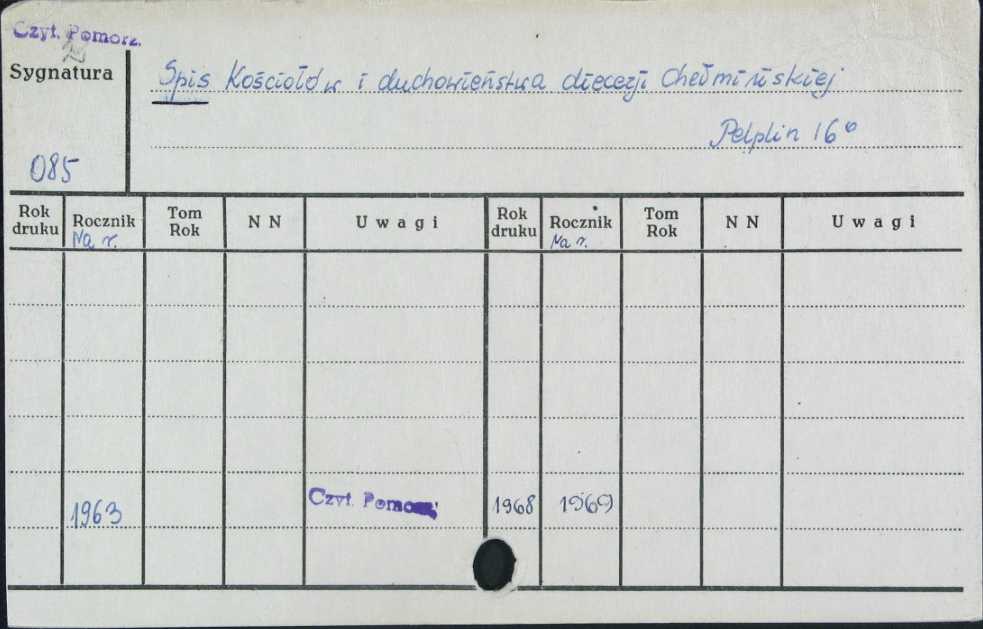 Czyt. Pomorz.
Sygnatura
Spis Kościołów i duchowieństwa diecezji Chełmińskiej
Pelplin 16°
085
Rok druku Rocznik Na r. Tom Rok N N Uwagi Rok druku Rocznik Na r. Tom Rok N N Uwagi
1963 Czyt. Pomorz. 1968 1969